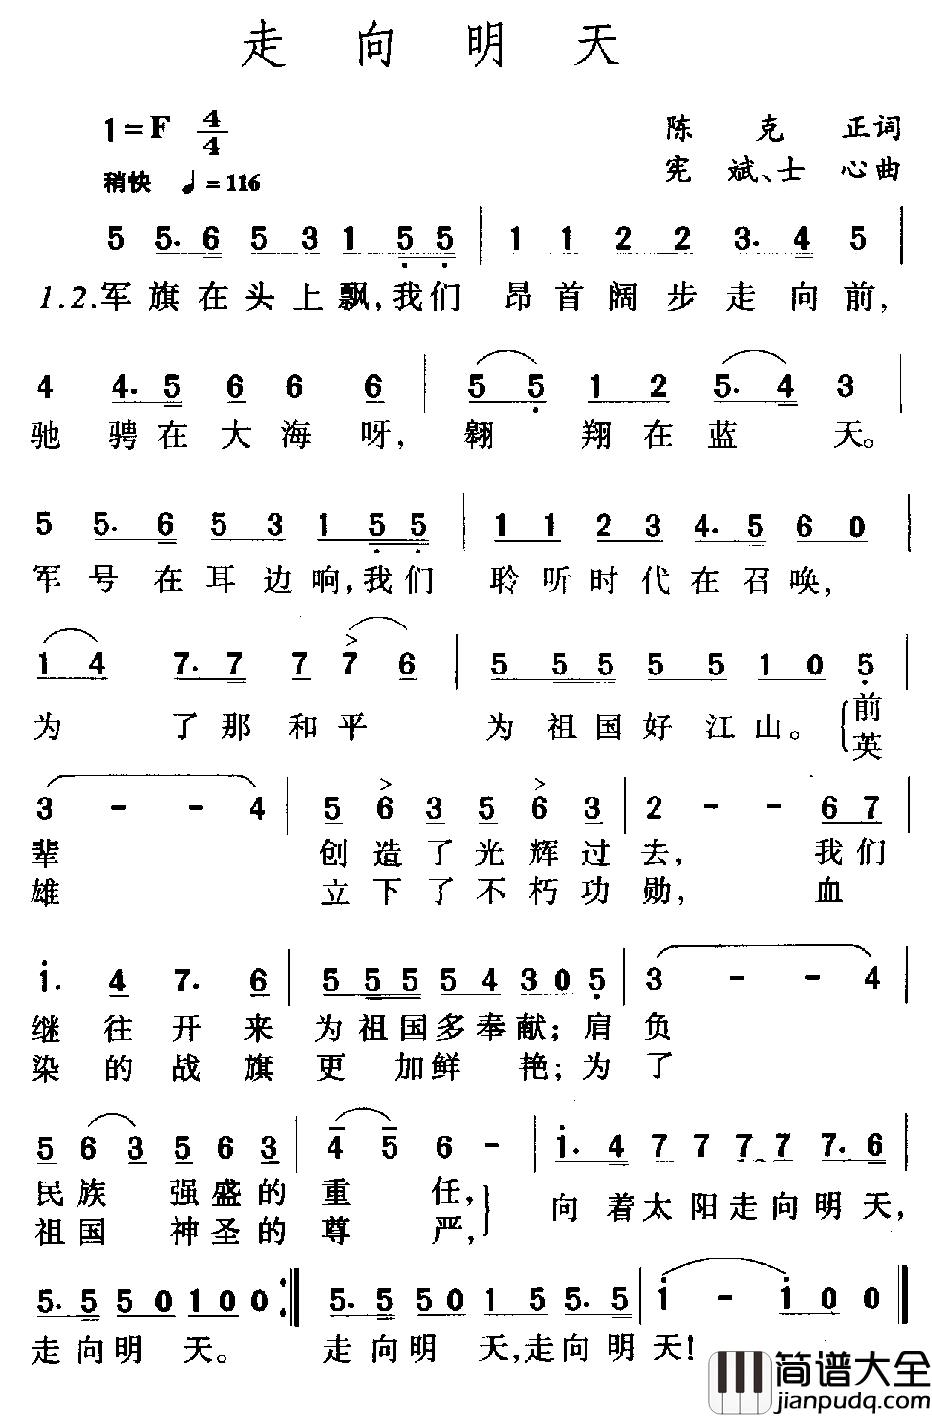 走向明天
1=F 4/4
陈克正词
稍快 ♩=116
宪斌、士心曲
5 5. 6 5 3 1 5 5 | 1 1 2 2 3. 4 5 |
1.2.军旗在头上飘,我们昂首阔步走向前,
4 4. 5 6 6 6 | 5 5 1 2 5. 4 3 |
驰骋在大海呀,翱翔在蓝天。
5 5. 6 5 3 1 5 5 | 1 1 2 3 4. 5 6 0 |
军号在耳边响,我们聆听时代在召唤,
1 4 7. 7 7 7 6 | 5 5 5 5 5 1 0 5 |
为了那和平为祖国好江山。{前
英
3 - - 4 | 5 6 3 5 6 3 | 2 - - 6 7 |
辈创造了光辉过去,我们
雄立下了不朽功勋,血
i. 4 7. 6 | 5 5 5 5 4 3 0 5 | 3 - - 4 |
继往开来为祖国多奉献;肩负
染的战旗更加鲜艳;为了
5 6 3 5 6 3 | 4 5 6 - | i. 4 7 7 7 7 7. 6 |
民族强盛的重任,
祖国神圣的尊严,} 向着太阳走向明天,
5. 5 5 0 1 0 0 :| 5. 5 5 0 1 5 5. 5 | i - i 0 0 ||
走向明天。走向明天,走向明天!
简谱大全
jianpudq.com